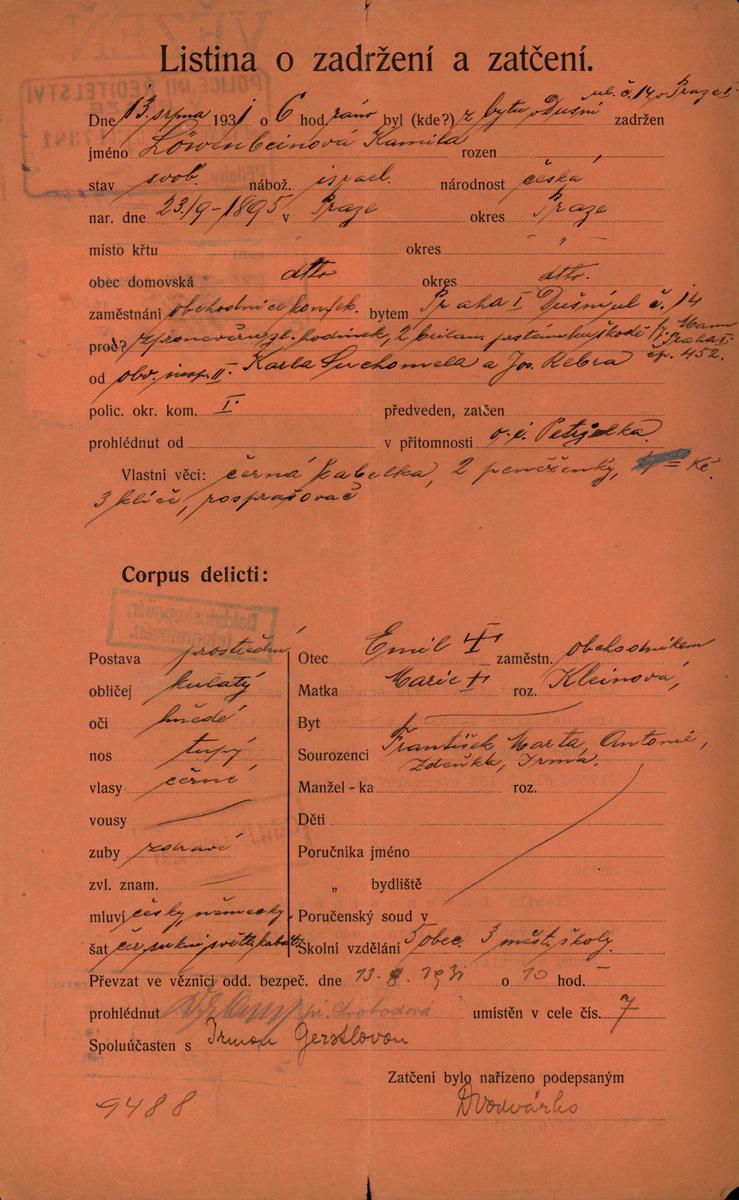 Listina o zadržení a zatčení.
ul. č. 14 v Praze I.
Dne 13. srpna 1931 o 6 hod. ráno byl (kde?) z bytu v Dušní zadržen
jméno Löwenbeinová Kamila rozen
stav svob. nábož. israel. národnost česká
nar. dne 23/9-1895 v Praze okres Praze
místo křtu okres "
obec domovská dtto okres dtto.
zaměstnání obchodnice konfek. bytem Praha I Dušní ul č. 14
proč? zpronevěru zl. hodinek, 2 brilant. prstenů ku škodě
Praha I.
od obv. insp. II. Karla Suchomela a Jos. Rebra čp. 452.
polic. okr. kom. I. předveden, zatčen
prohlédnut od v přítomnosti Petrželka.
Vlastní věci: černá kabelka, 2 peněženky, Kč.
3 klíče, rosprašovač
Corpus delicti:
Postava prostřední
obličej kulatý
oči hnědé
nos tupý
vlasy černé
vousy
zuby zdravé
zvl. znam.
mluví česky, německy
šat čer. sukni světlý kabát
Otec Emil † zaměstn. obchodníkem
Matka Marie † roz. Kleinová,
Byt
Sourozenci František, Marta, Antonie,
Zdeňka, Irma.
Manžel-ka roz.
Děti
Poručníka jméno
„ bydliště
Poručenský soud v
Školní vzdělání 5 obec. 3 měšť. školy.
Převzat ve věznici odd. bezpeč. dne 13-8. 1931 o 10 hod. –
prohlédnut Svobodová umístěn v cele čís. 7
Spoluúčasten s Irmou Gerstlovou
Zatčení bylo nařízeno podepsaným
9488 Dvodvárko